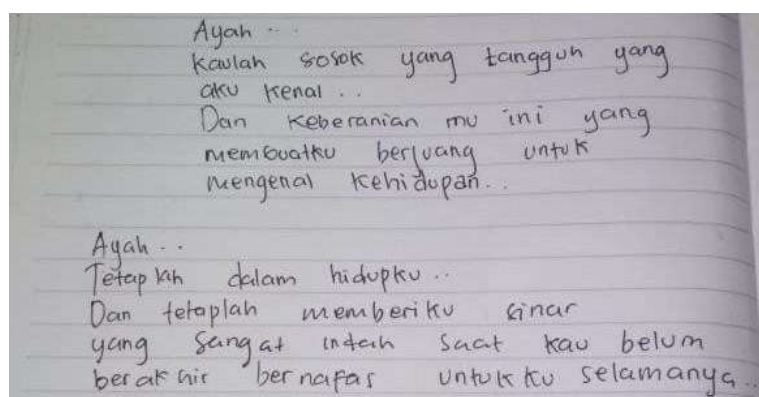 Ayah ..
Kaulah sosok yang tangguh yang
aku kenal ..
Dan keberanian mu ini yang
membuatku berjuang untuk
mengenal kehidupan ..
Ayah ...
Tetaplah dalam hidupku ..
Dan tetaplah memberiku sinar
yang sangat indah saat kau belum
berakhir bernafas untukku selamanya ..